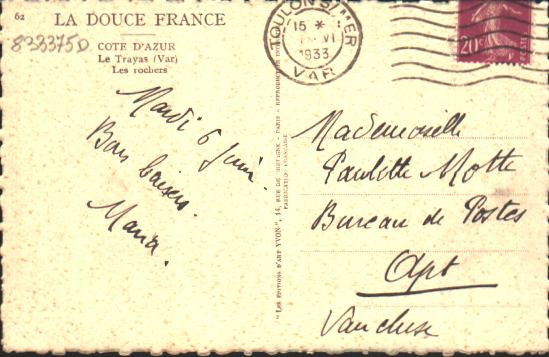 62
LA DOUCE FRANCE
8333750
COTE D'AZUR
Le Trayas (Var)
Les rochers
Mardi 6 Juin.
Bons baisers.
Maria.
"LES ÉDITIONS D'ART YVON", 14, RUE DE BRETAGNE - PARIS - REPRODUCTION
FABRICATION FRANÇAISE
TOULON S/MER
15 *
VI
1933
VAR
20c
Mademoiselle
Paulette Motte
Bureau de Postes
Apt
Vaucluse